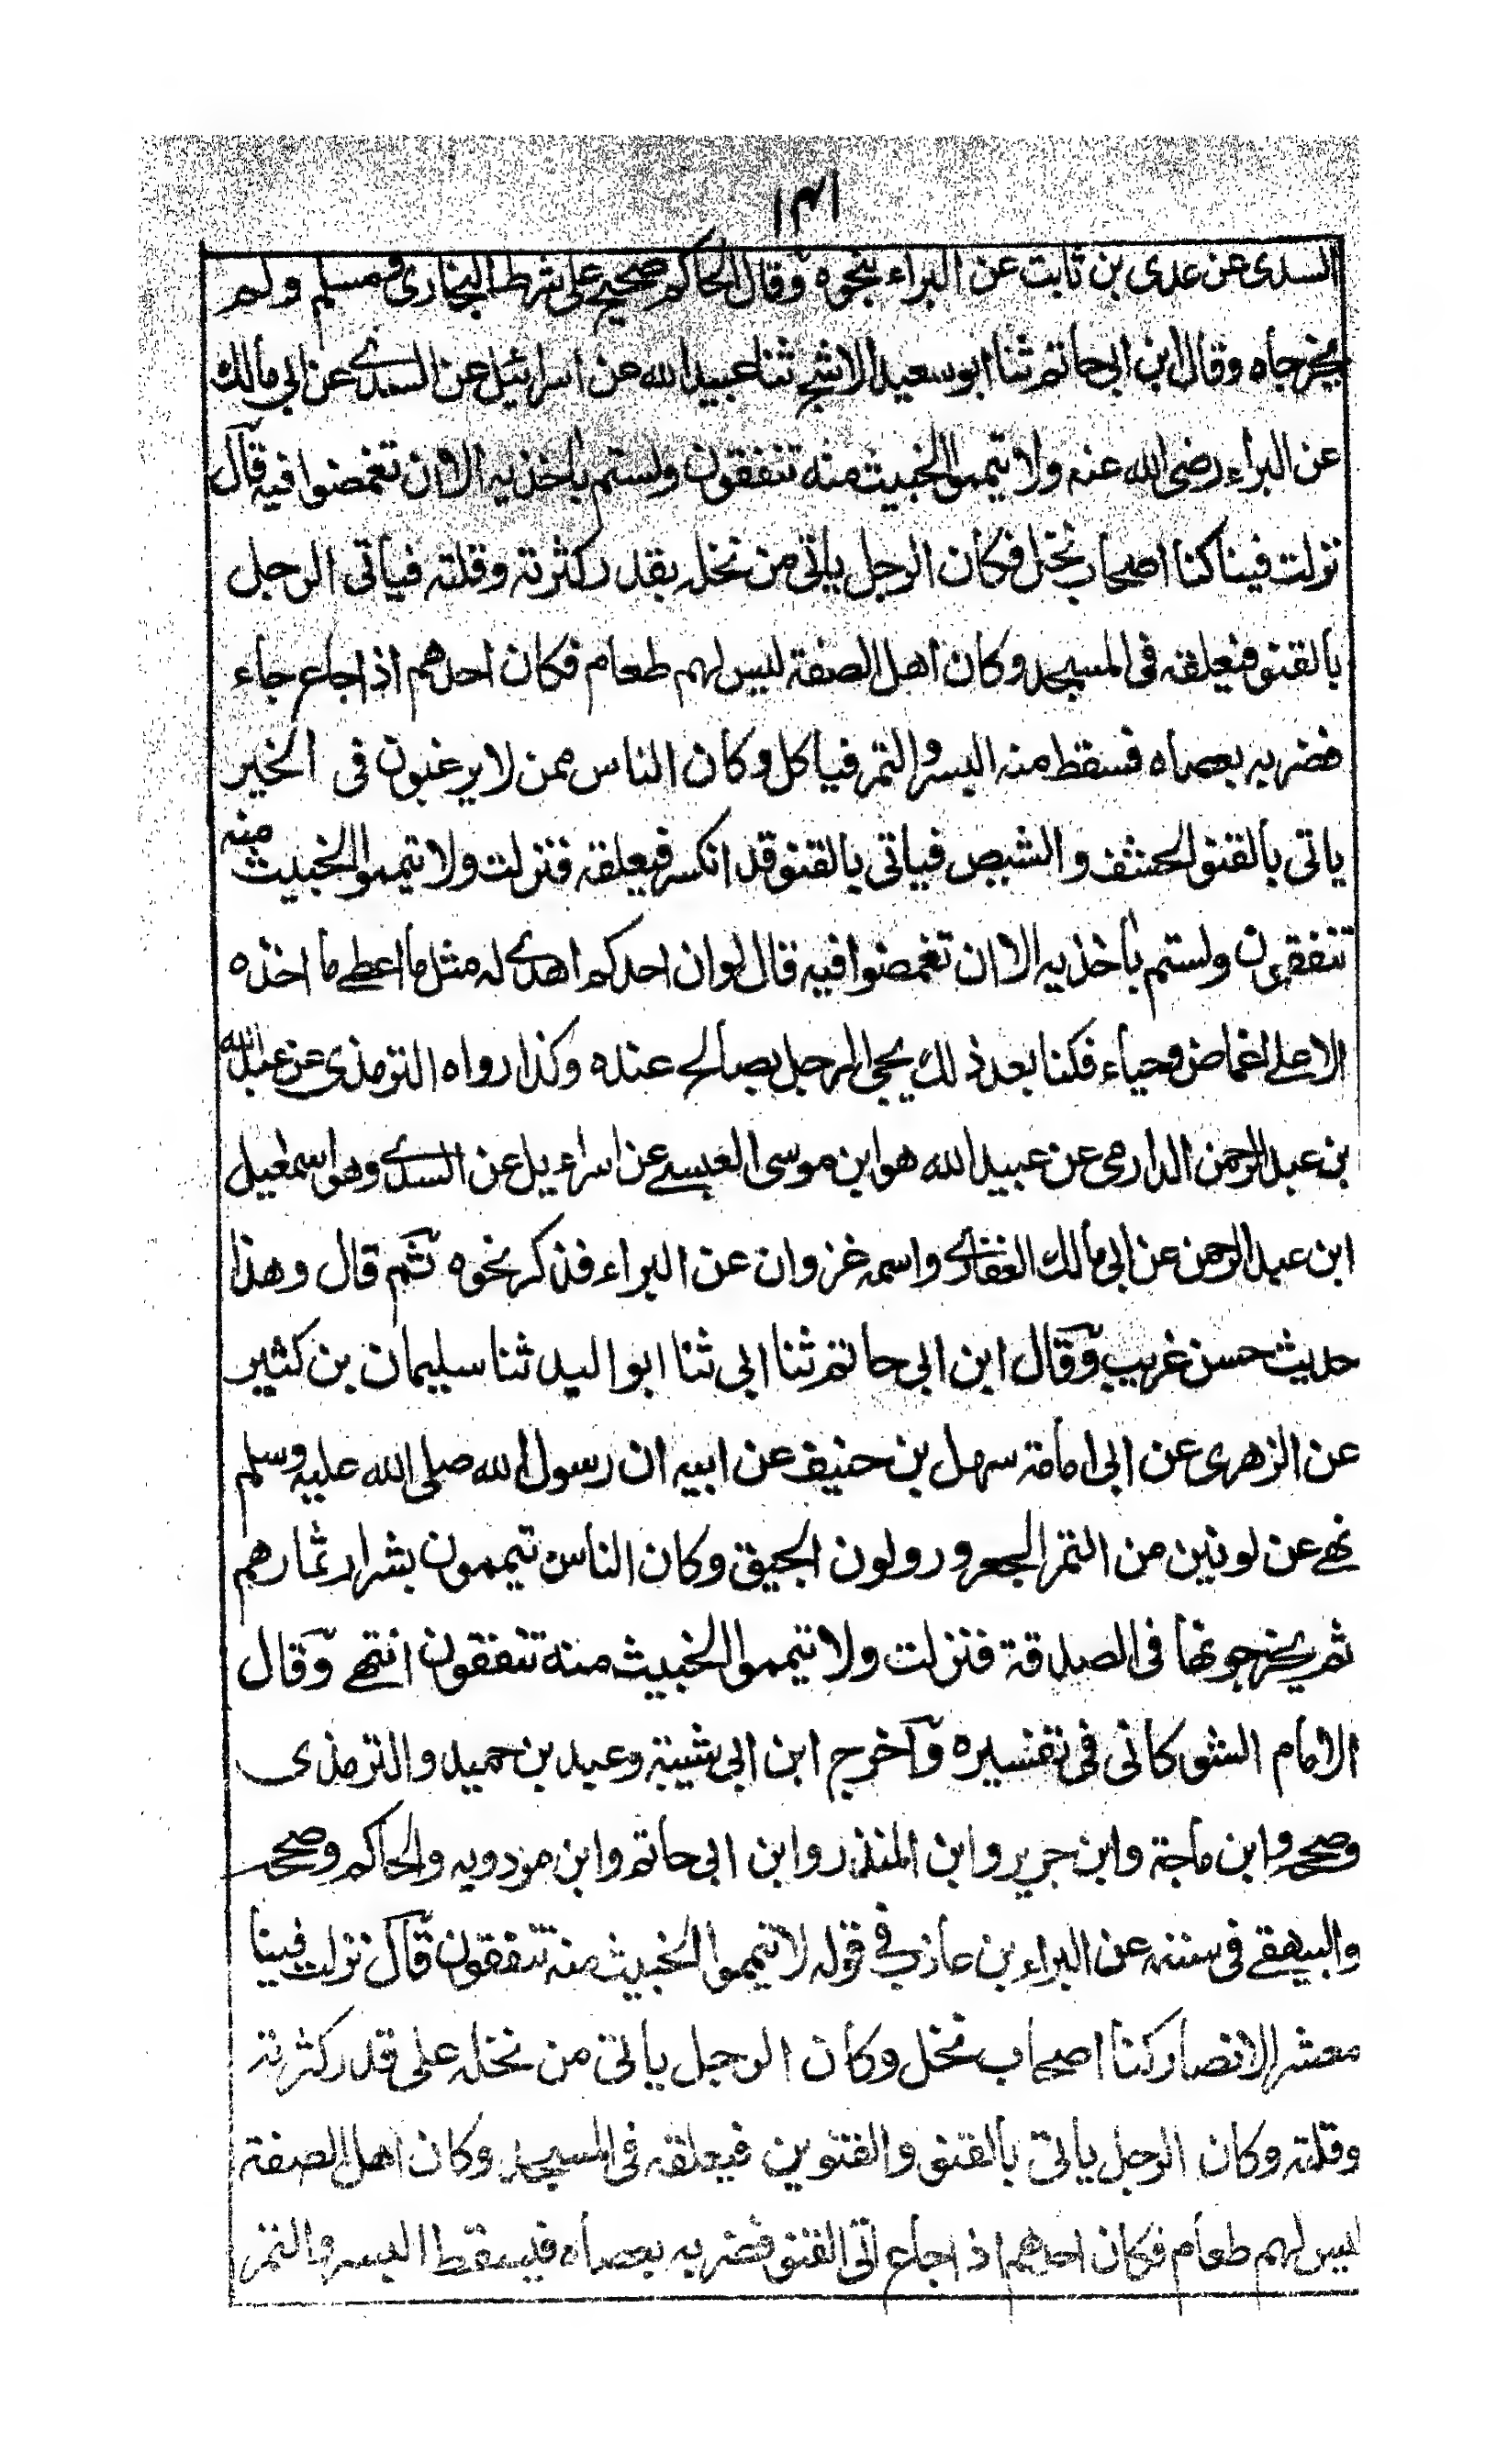 ١٣١
السدى عن عدى بن ثابت عن البراء بنحوه وقال الحاكم صحيح على شرط البخارى ومسلم ولم
يخرجاه وقال ابن ابى حاتم ثنا ابو سعيد الاشج ثنا عبيد الله عن اسرائيل عن السدى عن ابى مالك
عن البراء رضى الله عنه ولا تيمموا الخبيث منه تنفقون ولستم بأخذيه الا ان تغمضوا فيه قال
نزلت فينا كنا اصحاب نخل فكان الرجل ياتى من نخله بقدر كثرته وقلته فياتى الرجل
بالقنو فيعلقه فى المسجد وكان اهل الصفة ليس لهم طعام فكان احدهم اذا جاع جاء
فضربه بعصاه فسقط منه البسر والتمر فياكل وكان الناس ممن لا يرغبون فى الخير
ياتى بالقنو الحشف والشيص فياتى بالقنو قد انكسر فيعلقه فنزلت ولا تيمموا الخبيث منه
تنفقون ولستم بأخذيه الا ان تغمضوا فيه قال لو ان احدكم اهدى له مثل ما اعطى ما اخذه
الا على اغماض وحياء فكنا بعد ذلك يجئ الرجل بصالح عنده وكذا رواه الترمذى عن عبد الله
بن عبد الرحمن الدارمى عن عبيد الله هو ابن موسى العبسى عن اسراءيل عن السدى وهو اسمعيل
ابن عبد الرحمن عن ابى مالك الغفارى واسمه غزوان عن البراء فذكر نحوه ثم قال وهذا
حديث حسن غريب وقال ابن ابى حاتم ثنا ابى ثنا ابو اليد ثنا سليمان بن كثير
عن الزهرى عن ابى امامة سهل بن حنيف عن ابيه ان رسول الله صلى الله عليه وسلم
نهى عن لونين من التمر الجعرور ولون الجيق وكان الناس تيممون بشرار ثمارهم
ثم يخرجونها فى الصدقة فنزلت ولا تيمموا الخبيث منه تنفقون انتهى وقال
الامام الشوكانى فى تفسيره وآخرج ابن ابى شيبة وعبد بن حميد والترمذى
وصححه وابن ماجة وابن جرير وابن المنذر وابن ابى حاتم وابن مردويه والحاكم وصححه
والبيهقى فى سننه عن البراء بن عازب فى قوله لا تيمموا الخبيث منه تنفقون قال نزلت فينا
معشر الانصار كنا اصحاب نخل وكان الرجل ياتى من نخله على قدر كثرته
وقلته وكان الرجل ياتى بالقنو والقنوين فيعلقه فى المسجد وكان اهل الصفة
ليس لهم طعام فكان احدهم اذا جاع اتى القنو فضربه بعصاه فيسقط البسر والتمر